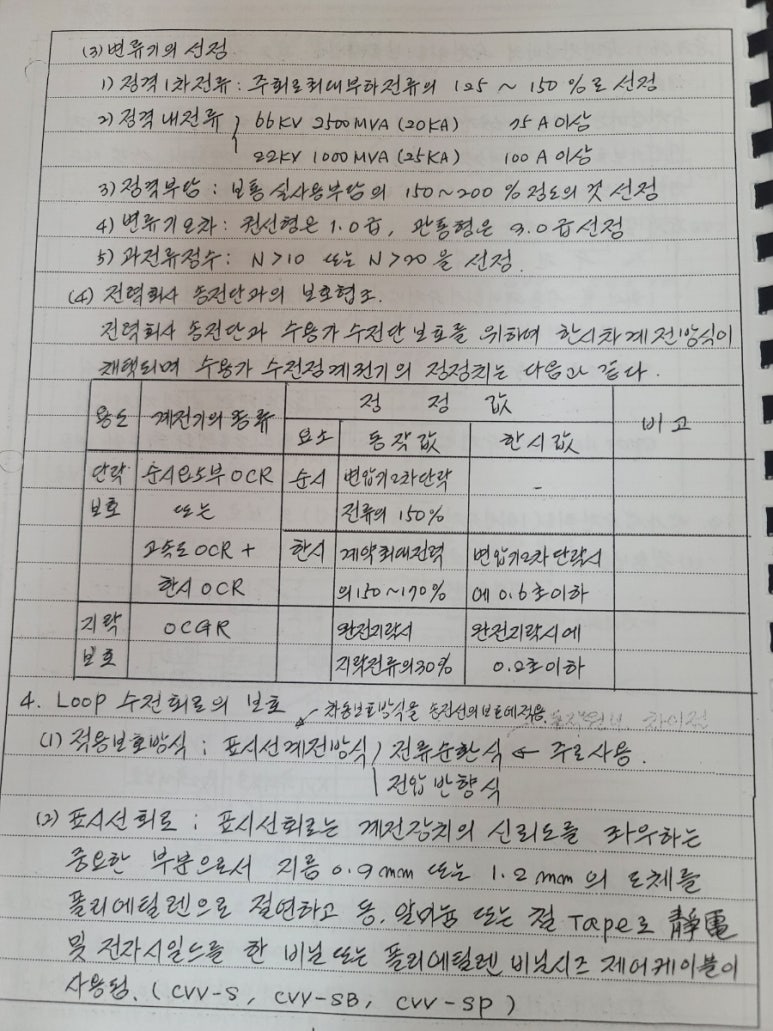 (3) 변류기의 선정
1) 정격1차전류 : 주회로최대부하전류의 125 ~ 150 %로 선정
2) 정격내전류 66KV 2500MVA (20KA) 75A이상
22KV 1000MVA (25KA) 100A이상
3) 정격부담 : 보통 실사용부담의 150~200 %정도의 것 선정
4) 변류기오차 : 권선형은 1.0급, 관통형은 3.0급선정
5) 과전류정수 : N>10 또는 N>20 을 선정.
(4) 전력회사 송전단과의 보호협조.
전력회사 송전단과 수용가 수전단 보호를 위하여 한시차계전방식이
채택되며 수용가 수전점계전기의 정정치는 다음과 같다.
용도 계전기의 종류 정 정 값 비고
요소 동작값 한시값
단락 순시요소부 OCR 순시 변압기2차단락 -
보호 또는 전류의 150%
고속도 OCR + 한시 계약최대전력 변압기2차단락시
한시 OCR 의150~170% 에 0.6초이하
지락 OCGR 완전지락시 완전지락시에
보호 지락전류의30% 0.2초이하
4. Loop 수전회로의 보호 차동보호방식을 송전선의보호에적용. 차이점
(1) 적용보호방식 ; 표시선계전방식 전류순환식 ← 주로사용.
전압반향식
(2) 표시선회로 ; 표시선회로는 계전장치의 신뢰도를 좌우하는
중요한 부분으로서 지름 0.9mm 또는 1.2mm의 도체를
폴리에틸렌으로 절연하고 동, 알미늄 또는 철 Tape로 靜電
및 전자시일드를 한 비닐 또는 폴리에틸렌 비닐시즈 제어케이블이
사용됨. (CVV-S, CVV-SB, CVV-SP)